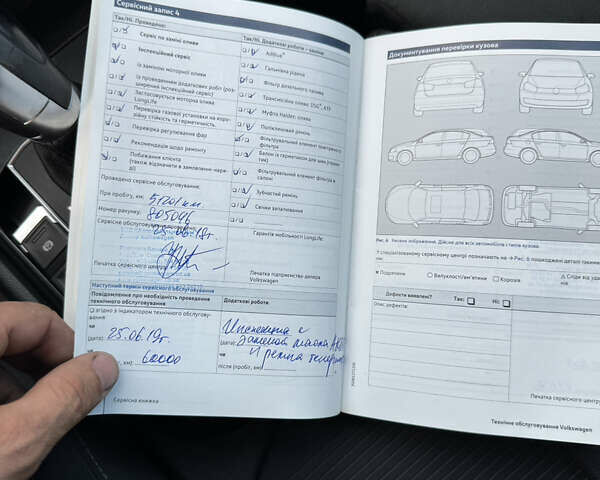 Сервісний запис 4
Так/Ні. Проведено:
Сервіс по заміні оливи
Інспекційний сервіс
із заміною моторної оливи
із проведенням додаткових робіт (роз-
ширення інспекційний сервіс)
Застосовується моторна олива
LongLife
Перевірка газової установки на коро-
зійну стійкість та герметичність.
Перевірка регулювання фар
Рекомендація щодо ремонту
Побажання клієнта
(також відзначити в замовленні-наря-
ді)
Проведена сервісне обслуговування:
При пробігу, км: 51201 км.
Номер рахунку: 805006
Сервісне обслуговування
25.06.18г.
Печатка сервісного центру
Так/Ні. Додаткові роботи – заміна:
AdBlue®
Гальмівна рідина
Фільтр дизельного палива
Трансмісійна олива DSG®,
Муфта Haldex, олива
Полікліновий ремінь
Фільтрувальний елемент повітряного
фільтра
Балон із герметиком для шин (термін
Фільтрувальний елемент фільтра в
салоні
Зубчастий ремінь
Свічки запалювання
Гарантія мобільності LongLife:
Печатка підприємства дилера
Volkswagen
Наступний термін сервісного обслуговування
Повідомлення про необхідність проведення
технічного обслуговування
згідно з індикатором технічного обслугову-
вання
чи
25.06.19г. (дата)
чи
60000
Додаткові роботи:
Инспекция с
(дата): заменой масла
чи
И ремня
після (пробіг, км)
Сервісна книжка
Документування перевірки кузова
Рис. 6 Умовне зображення. Дійсне для всіх автомобілів і типів кузова.
У спеціалізованому сервісному центрі позначають на → Рис. 6 пошкоджені деталі
Подряпини
Випуклості/вм'ятини
Корозія
Сліди від уда-
Дефекти виявлені?
Так:
Ні:
Опис дефектів:
Печатка сервісного центру
Технічне обслуговування Volkswagen